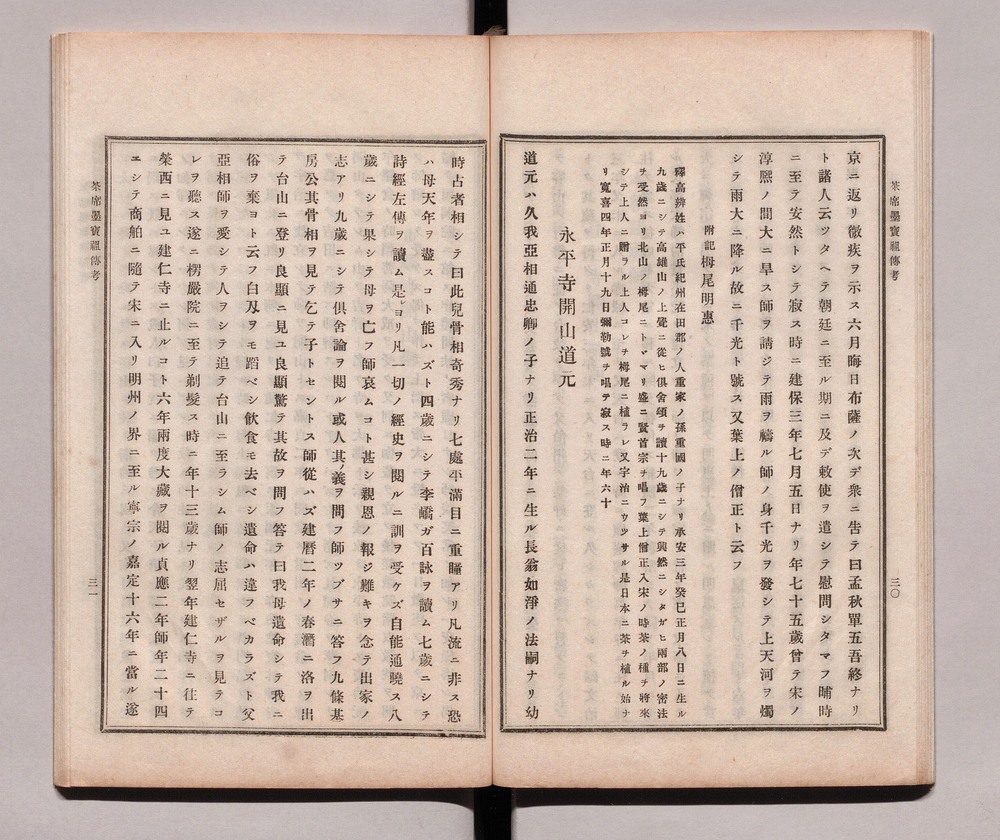 茶席墨寶祖傳考
三〇
京ニ返リ微疾ヲ示ス六月晦日布薩ノ次デ衆ニ告テ曰孟秋單五吾終ナリ
ト諸人云ツタヘテ朝廷ニ至ル期ニ及デ敕使ヲ遣シテ慰問シタマフ晡時
ニ至テ安然トシテ寂ス時ニ建保三年七月五日ナリ年七十五歲曾テ宋ノ
淳熙ノ間大ニ旱ス師ヲ請ジテ雨ヲ禱ル師ノ身千光ヲ發シテ上天河ヲ燭
シテ雨大ニ降ル故ニ千光ト號ス又葉上ノ僧正ト云フ
附記栂尾明惠
釋高辨姓ハ平氏紀州在田郡ノ人重家ノ孫重國ノ子ナリ承安三年癸巳正月八日ニ生ル
九歲ニシテ高雄山ノ上覺ニ從ヒ俱舍頌ヲ讀十九歲ニシテ興然ニシタガヒ兩部ノ密法
ヲ受然ヨリ北山ノ栂尾ニトヾマリ盛ニ賢首宗ヲ唱フ葉上僧正入宋ノ時茶ノ種ヲ將來
シテ上人ニ贈ラル上人コレヲ栂尾ニ植ラレ又宇治ニウツサル是日本ニ茶ヲ植ル始ナ
リ寬喜四年正月十九日彌勒號ヲ唱テ寂ス時ニ年六十
永平寺開山道元
道元ハ久我亞相通忠卿ノ子ナリ正治二年ニ生ル長翁如淨ノ法嗣ナリ幼
時占者相シテ曰此兒骨相奇秀ナリ七處平滿目ニ重瞳アリ凡流ニ非ス恐
ハ母天年ヲ盡スコト能ハズト四歲ニシテ李嶠ガ百詠ヲ讀ム七歲ニシテ
詩經左傳ヲ讀ム是ヨリ凡一切ノ經史ヲ閱ルニ訓ヲ受ケズ自能通曉ス八
歲ニシテ果シテ母ヲ亡フ師哀ムコト甚シ親恩ノ報ジ難キヲ念テ出家ノ
志アリ九歲ニシテ俱舍論ヲ閱ル或人其ノ義ヲ問フ師ツブサニ答フ九條基
房公其骨相ヲ見テ乞テ子トセントス師從ハズ建曆二年ノ春潛ニ洛ヲ出
テ台山ニ登リ良顯ニ見ユ良顯驚テ其故ヲ問フ答テ曰我母遺命シテ我ニ
俗ヲ棄ヨト云フ白刄ヲモ蹈ベシ飲食モ去ベシ遺命ハ違フベカラズト父
亞相師ヲ愛シテ人ヲシテ追テ台山ニ至ラシム師ノ志屈セザルヲ見テコ
レヲ聽ス遂ニ楞嚴院ニ至テ剃髮ス時ニ年十三歲ナリ翌年建仁寺ニ往テ
榮西ニ見ユ建仁寺ニ止ルコト六年兩度大藏ヲ閱ル貞應二年師年二十四
ニシテ商舶ニ隨テ宋ニ入リ明州ノ界ニ至ル寧宗ノ嘉定十六年ニ當ル遂
茶席墨寶祖傳考
三一